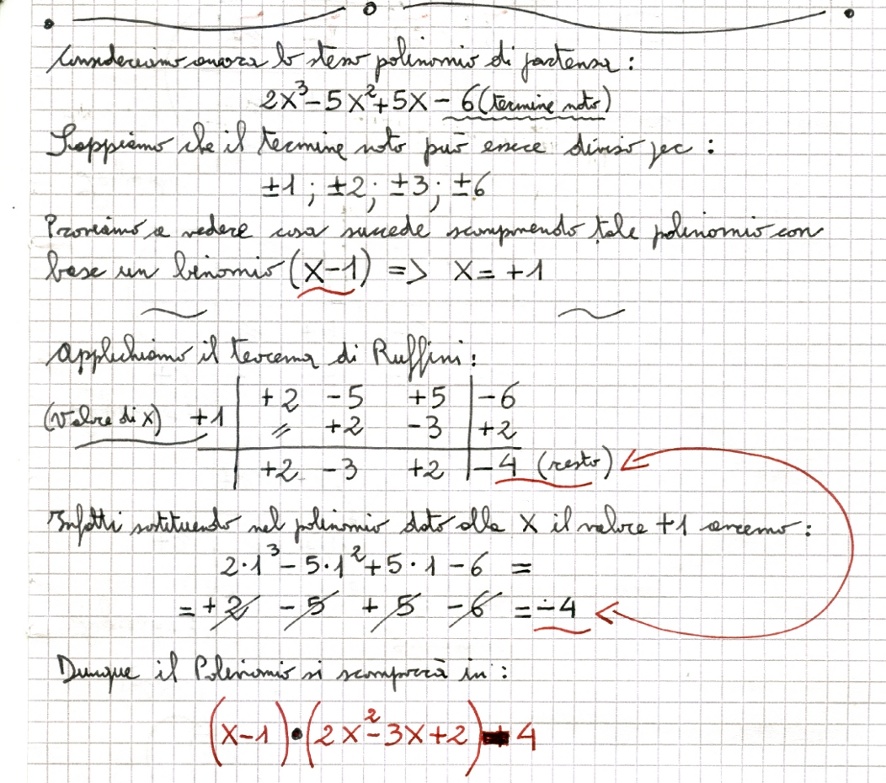 Consideriamo ancora lo stesso polinomio di partenza :
2x³-5x²+5x-6 (termine noto)
Sappiamo che il termine noto può essere diviso per :
±1 ; ±2 ; ±3 ; ±6
Proviamo a vedere cosa succede scomponendo tale polinomio con
base un binomio (x-1) => x = +1
Applichiamo il teorema di Ruffini :
+2 -5 +5 -6
(Valore di x) +1 // +2 -3 +2
+2 -3 +2 -4 (resto)
Infatti sostituendo nel polinomio dato alla x il valore +1 avremo :
2·1³-5·1²+5·1-6 =
= +2 -5 +5 -6 = -4
Dunque il Polinomio si scomporrà in :
(x-1)·(2x²-3x+2) 4